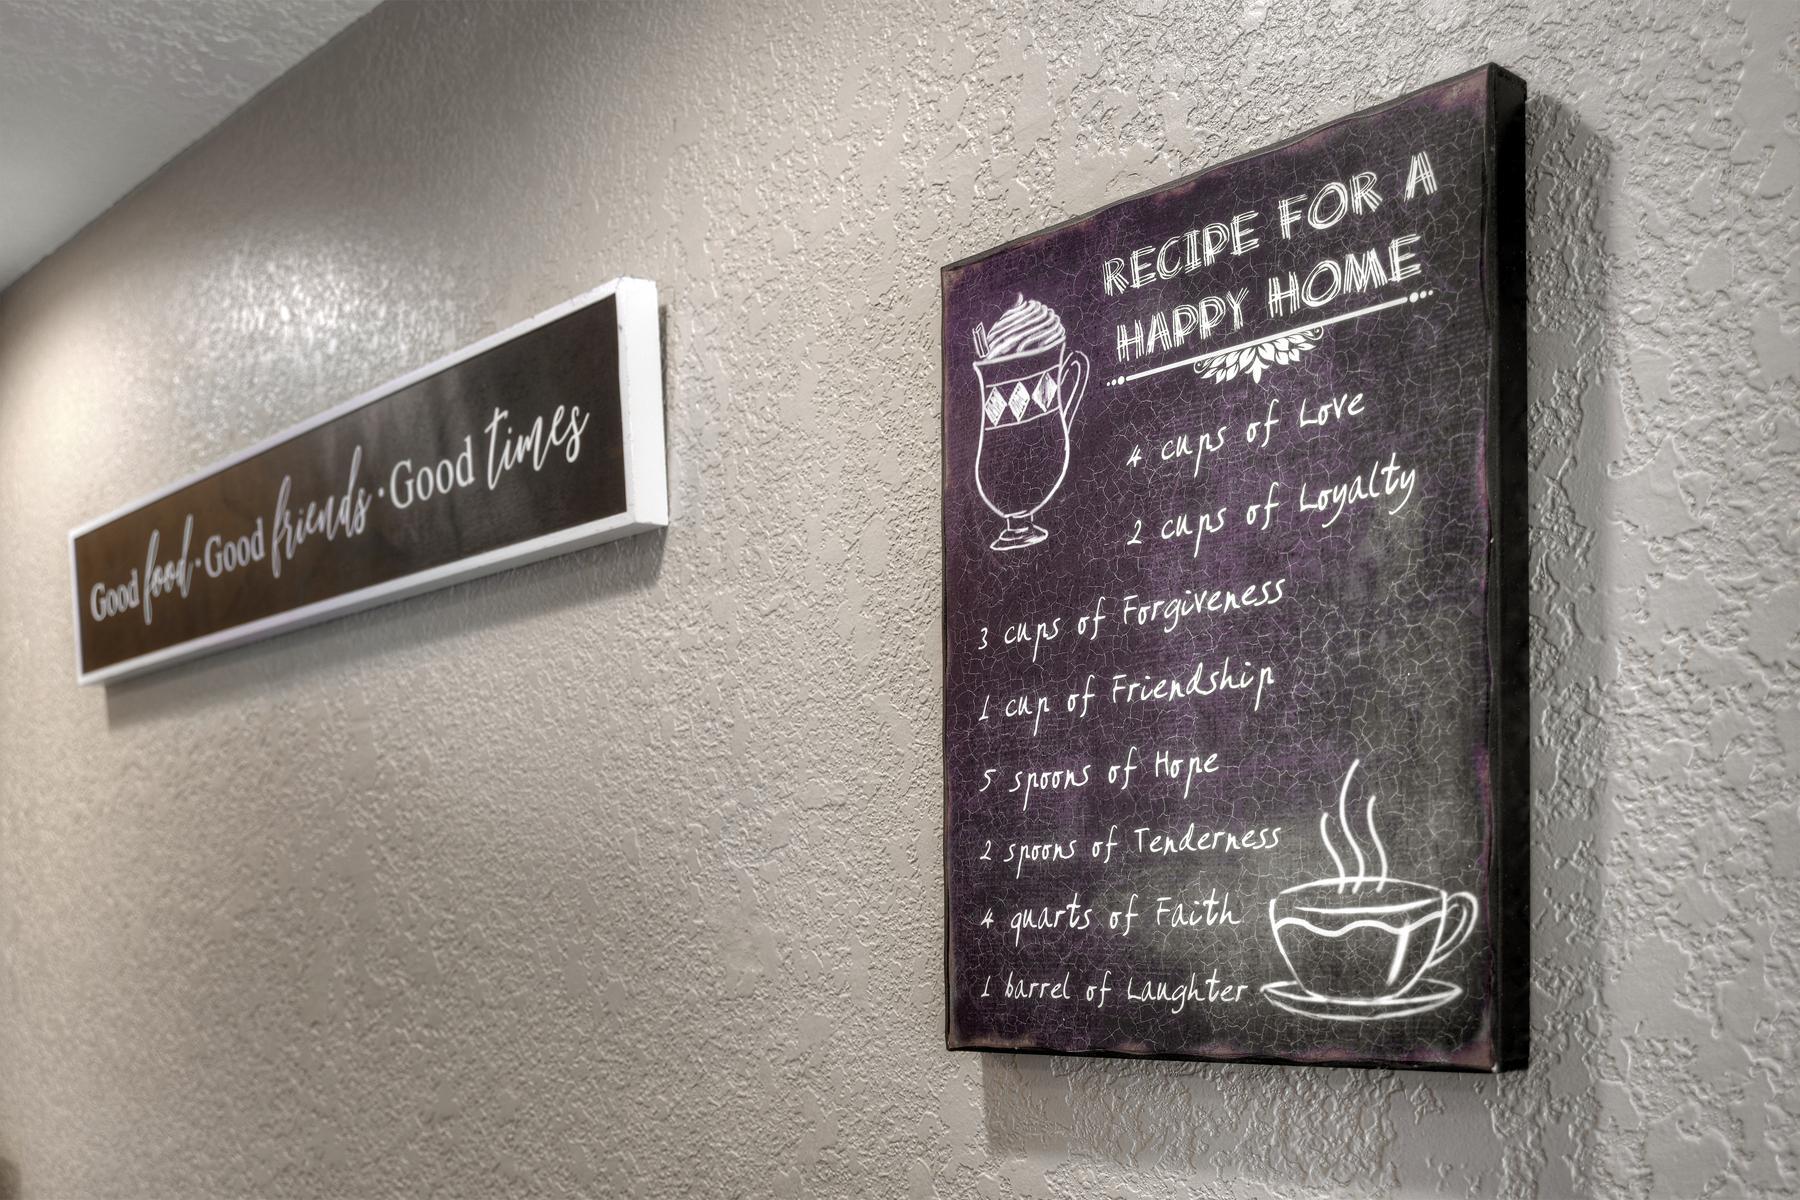 Good food · Good friends · Good times
RECIPE FOR A
HAPPY HOME
4 cups of Love
2 cups of Loyalty
3 cups of Forgiveness
1 cup of Friendship
5 spoons of Hope
2 spoons of Tenderness
4 quarts of Faith
1 barrel of Laughter